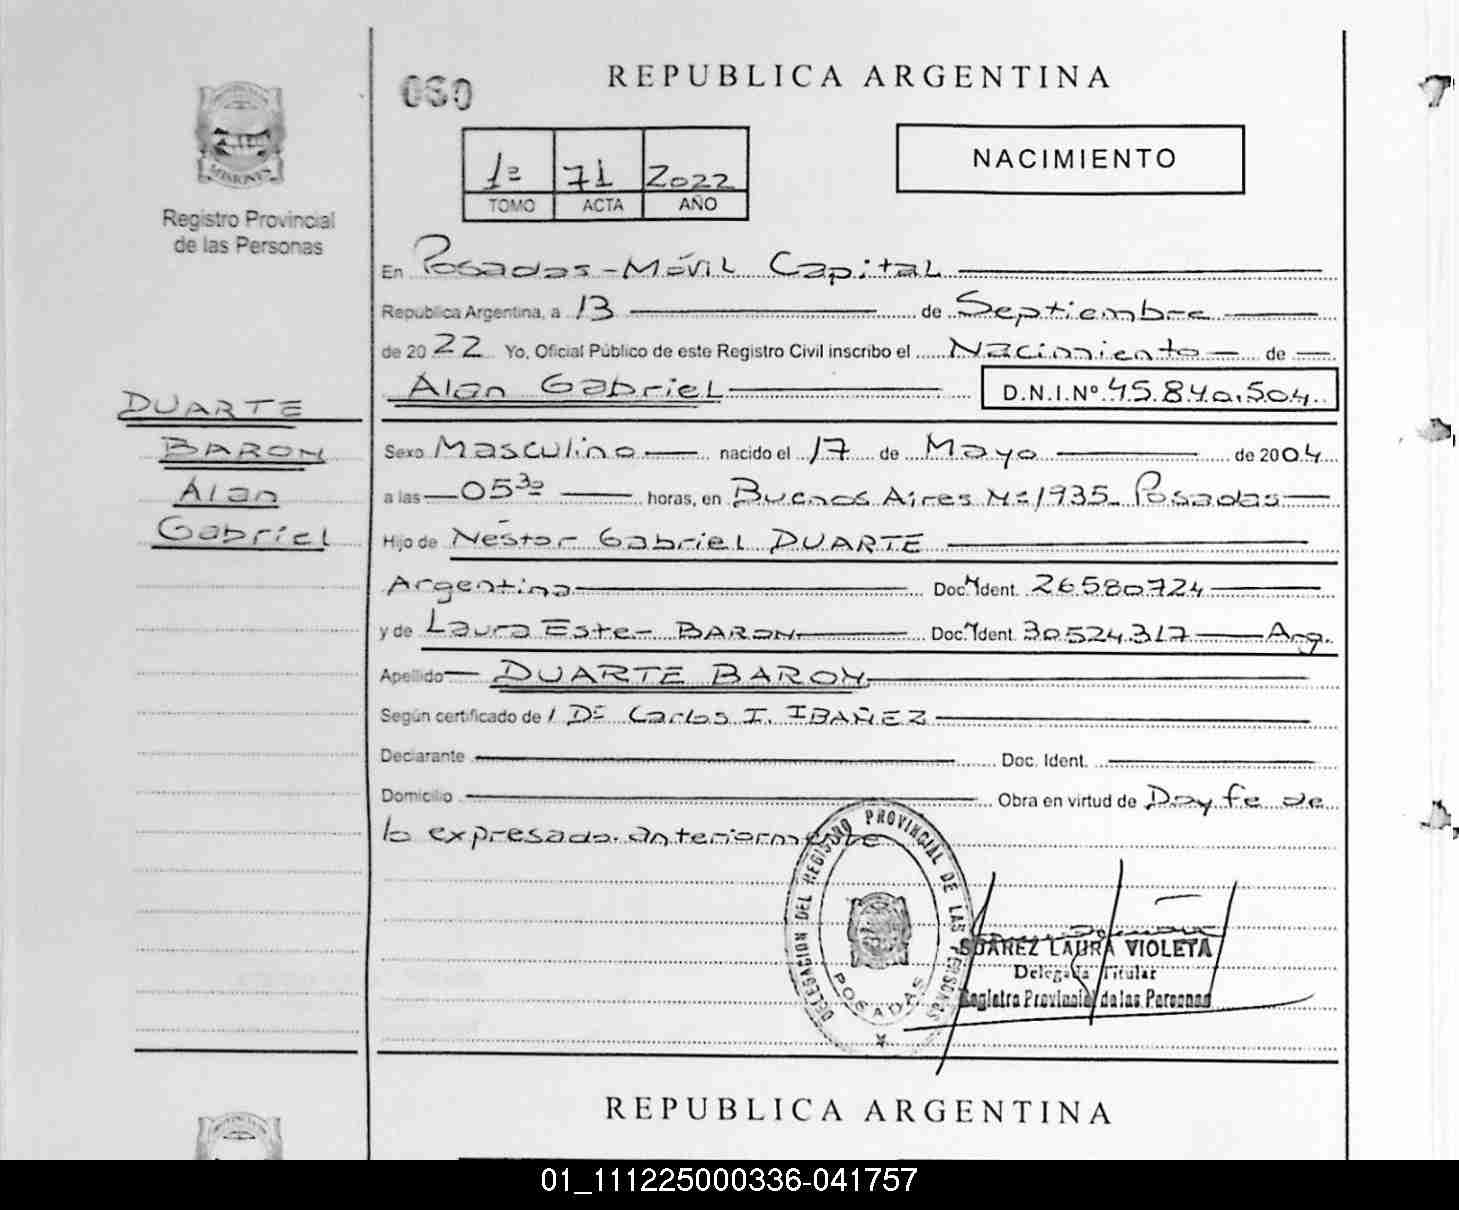 060
REPUBLICA ARGENTINA
MISIONES
Registro Provincial
de las Personas
1º 71 2022
TOMO ACTA AÑO
NACIMIENTO
En Posadas - Móvil Capital
Republica Argentina, a 13 de Septiembre
de 2022 Yo, Oficial Público de este Registro Civil inscribo el Nacimiento de
Alan Gabriel D.N.I.Nº 45.840.504
DUARTE
BARON
Alan
Gabriel
Sexo Masculino nacido el 17 de Mayo de 2004
a las 05³⁰ horas, en Buenos Aires Nº 1935 Posadas
Hijo de Néstor Gabriel DUARTE
Argentina Doc. Ident. 26580724
y de Laura Ester BARON Doc. Ident. 30.524.317 Arg.
Apellido DUARTE BARON
Según certificado de Dr Carlos I. IBAÑEZ
Declarante Doc. Ident.
Domicilio Obra en virtud de Doy fe de
lo expresado anteriormente
DELEGACION DEL REGISTRO PROVINCIAL DE LAS PERSONAS
POSADAS
SUAREZ LAURA VIOLETA
Delegada Titular
Registro Provincial de las Personas
REPUBLICA ARGENTINA
01_111225000336-041757